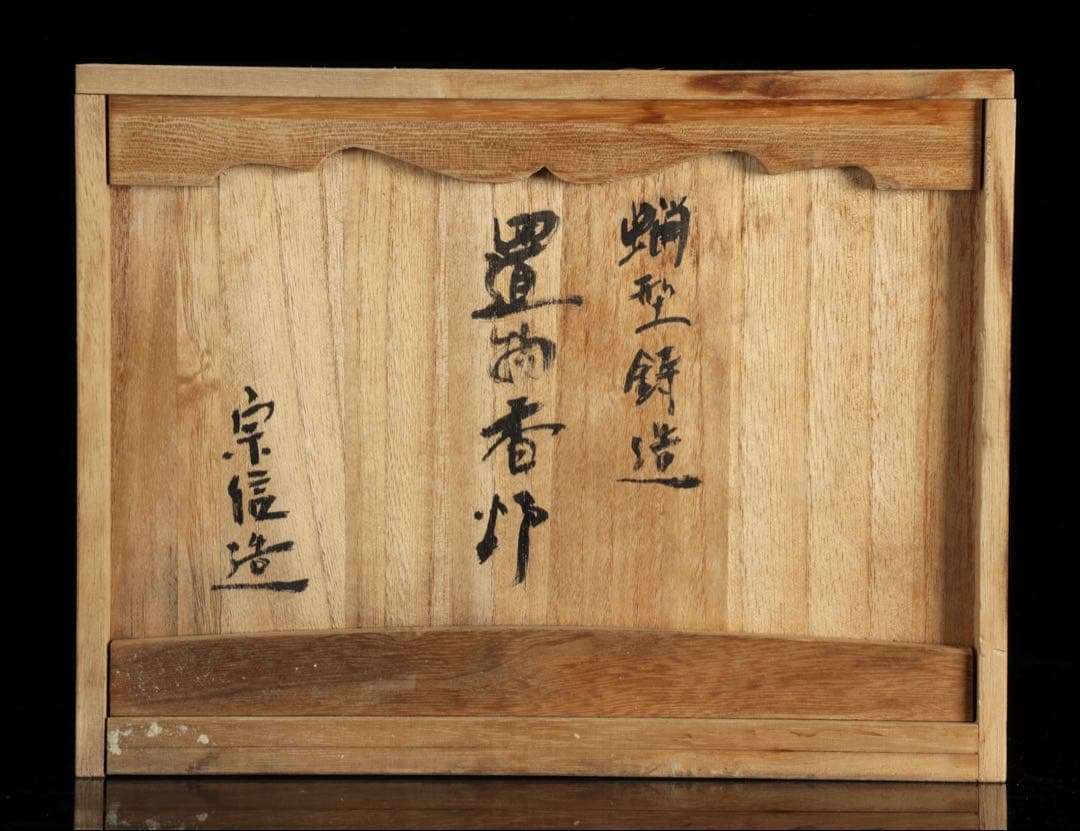 蝋型鋳造
置物香炉
宗信造